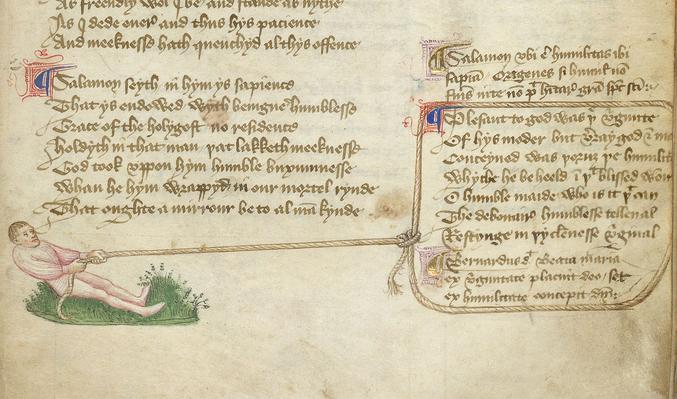 As freendly wol I be and stande al nythe
As I dede ever and thus hys pacience
And meeknesse hath quenchyd al thys offence
Salamon seyth in hym ys sapience
That ys endowed wyth benigne humblesse
Grace of the holy gost no residence
holdyth in that man þat lakketh meeknesse
God took uppon hym humble buxumnesse
Whan he hym wrappyd in our mortel kynde
That oughte a mirrour be to al mankynde
Salamon ubi est humilitas ibi
sapia Origenes si humil no
fuis in te no pt hitar gra sps sci
Plesant to god was þe virginite
Of hys moder but veray god & ma
Conceyved was porgh þe humilit
Whyche he beheeld in þe blissed wom
O humble maide who is it þt can
The debonair humblesse telle al
Restynge in þy clennesse virginal
Bernardus Beata maria
ex virginitate placuit deo set
ex humilitate concepit dm